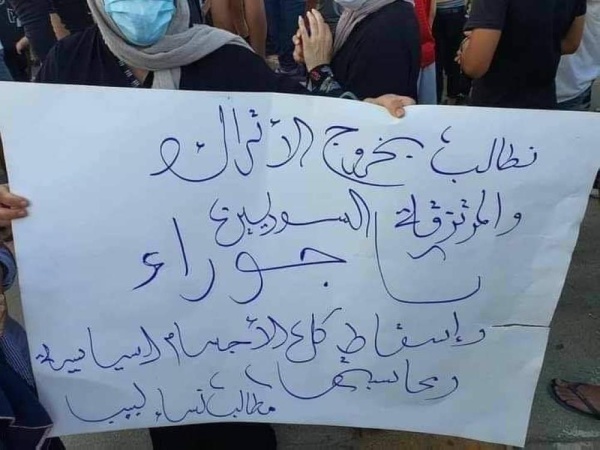 نطالب بخروج الأتراك
والمرتزقة السوريين
تاجوراء
وإسقاط كل الأجسام السياسية
ومحاسبتها
مطالب نساء ليبيا